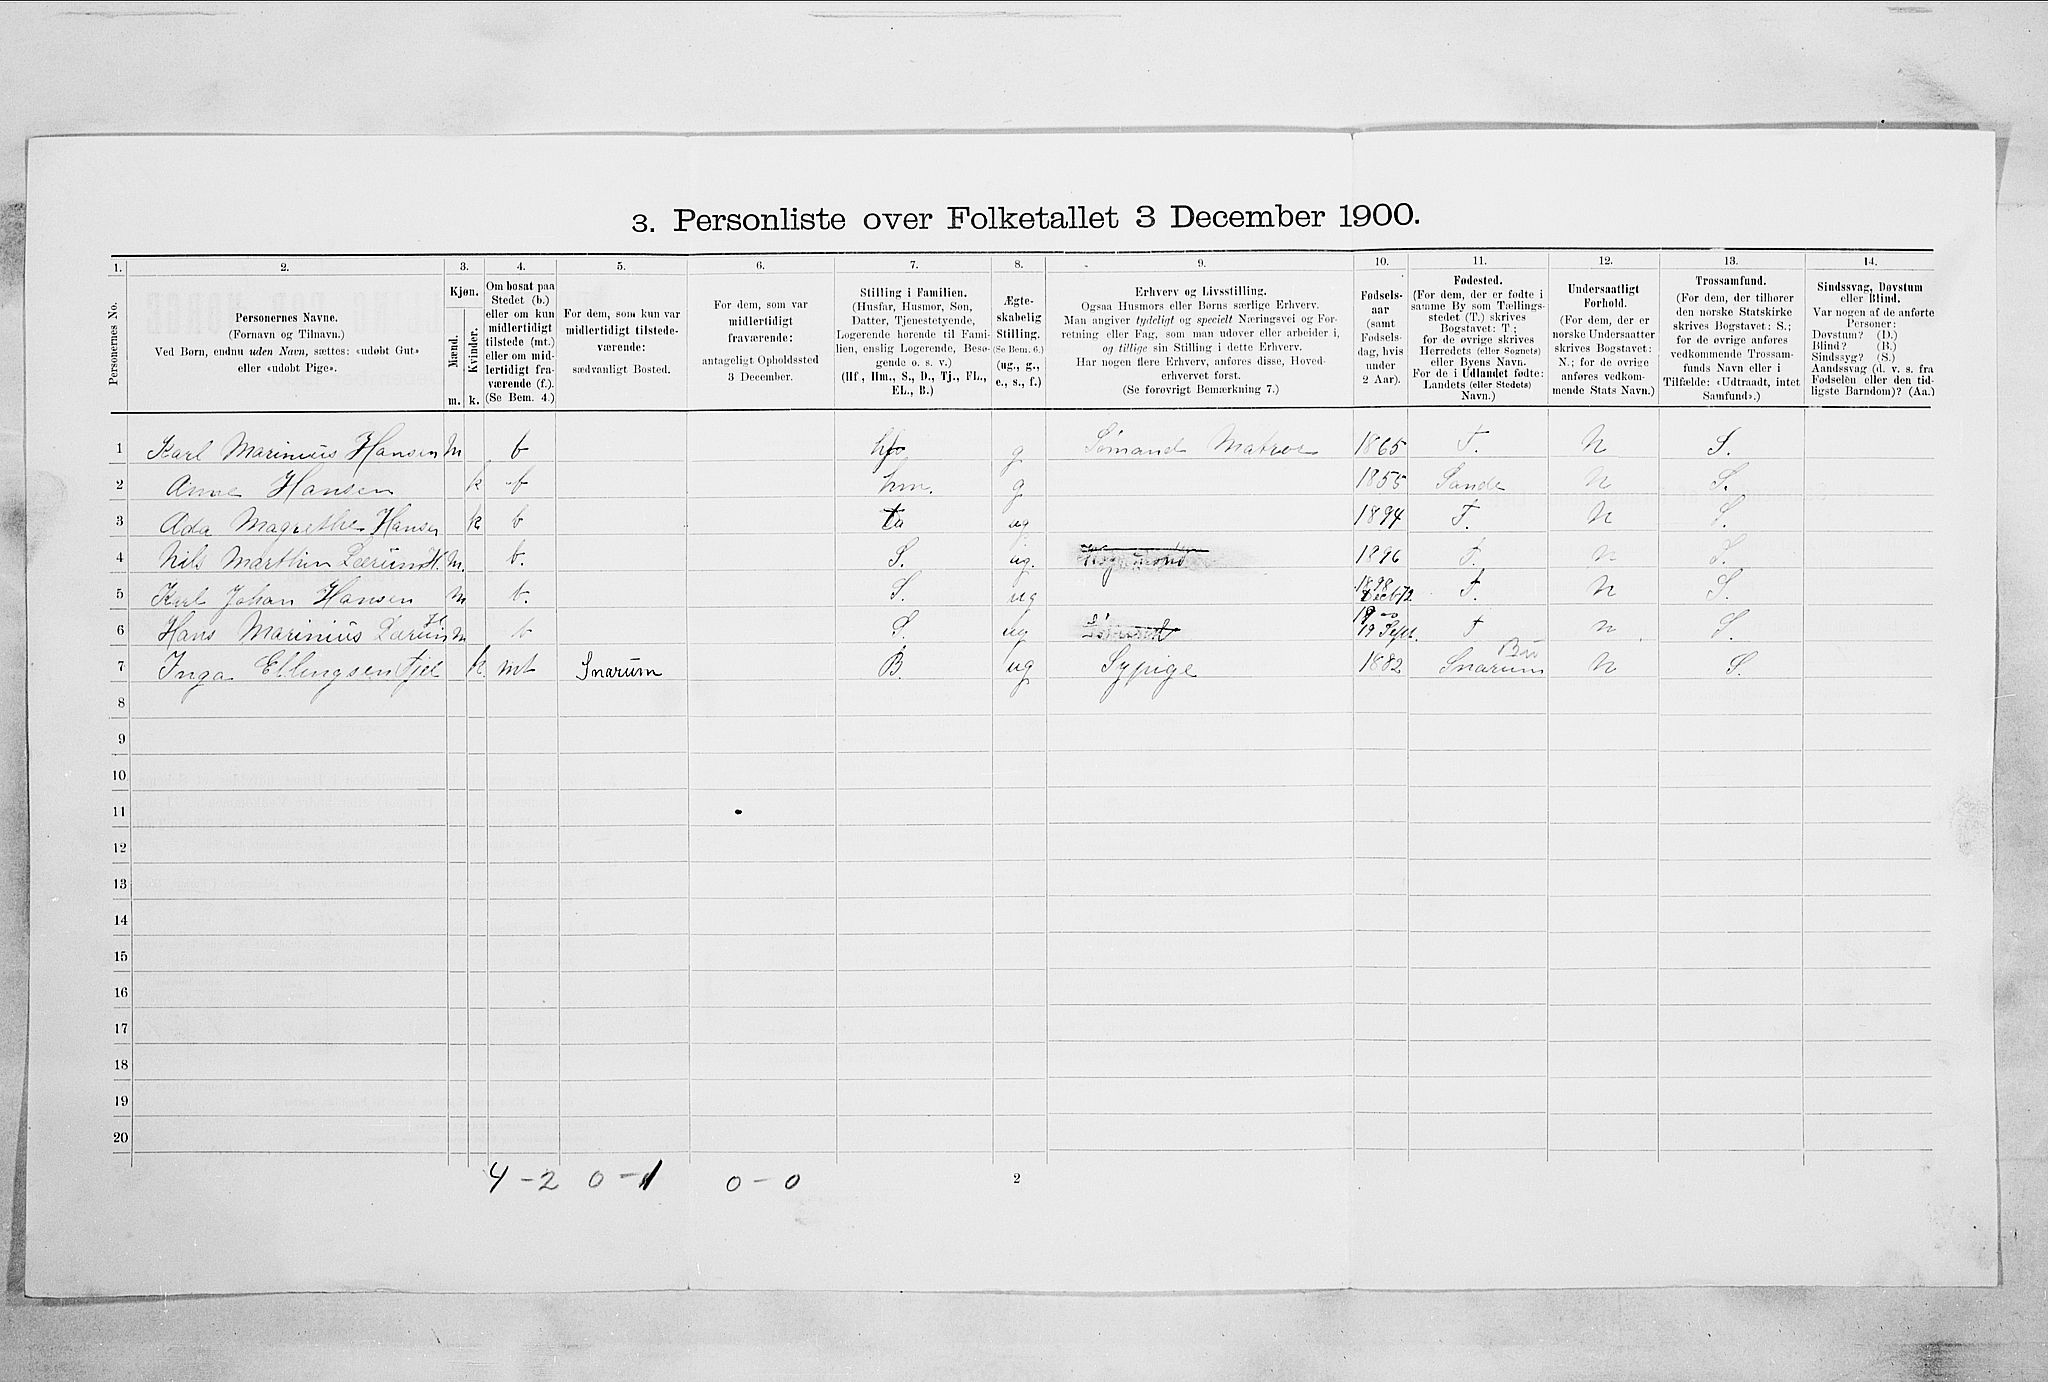 3. Personliste over Folketallet 3 December 1900.
1. 2. 3. 4. 5. 6. 7. 8. 9. 10. 11. 12. 13. 14.
Personernes No.
Personernes Navne.
(Fornavn og Tilnavn.)
Ved Børn, endnu uden Navn, sættes: «udøbt Gut»
eller «udøbt Pige».
Kjøn.
Mænd.
Kvinder.
m. k.
Om bosat paa
Stedet (b.)
eller om kun
midlertidigt
tilstede (mt.)
eller om mid-
lertidigt fra-
værende (f.).
(Se Bem. 4.)
For dem, som kun var
midlertidigt tilstede-
værende:
sædvanligt Bosted.
For dem, som var
midlertidigt
fraværende:
antageligt Opholdssted
3 December.
Stilling i Familien.
(Husfar, Husmor, Søn,
Datter, Tjenestetyende,
Logerende hørende til Fami-
lien, enslig Logerende, Besø-
gende o. s. v.)
(Hf, Hm., S., D., Tj., FL.,
EL., B.)
Ægte-
skabelig
Stilling.
(Se Bem. 6.)
(ug., g.,
e., s., f.)
Erhverv og Livsstilling.
Ogsaa Husmors eller Børns særlige Erhverv.
Man angiver tydeligt og specielt Næringsvei og For-
retning eller Fag, som man udover eller arbeider i,
og tillige sin Stilling i dette Erhverv.
Har nogen flere Erhverv, anføres disse, Hoved-
erhvervet først.
(Se forøvrigt Bemærkning 7.)
Fødsels-
aar
(samt
Fødsels-
dag, hvis
under
2 Aar).
Fødested.
(For dem, der er fødte i
samme By som Tællings-
stedet (T.) skrives
Bogstavet: T;
for de øvrige skrives
Herredets (eller Sognets)
eller Byens Navn.
For de i Udlandet fødte:
Landets (eller Stedets)
Navn.)
Undersaatligt
Forhold.
(For dem, der er
norske Undersaatter
skrives Bogstavet:
N.; for de øvrige
anføres vedkom-
mende Stats Navn.)
Trossamfund.
(For dem, der tilhører
den norske Statskirke
skrives Bogstavet: S.;
for de øvrige anføres
vedkommende Trossam-
funds Navn eller i
Tilfælde: «Udtraadt, intet
Samfund».)
Sindssvag, Døvstum
eller Blind.
Var nogen af de anførte
Personer:
Døvstum? (D.)
Blind? (B.)
Sindssyg? (S.)
Aandssvag (d. v. s. fra
Fødselen eller den tid-
ligste Barndom)? (Aa.)
1 Karl Marinius Hansen m b hf g Sømand Matros 1865 T. N S.
2 Anne Hansen k b hm. g 1855 Sande N S.
3 Ada Magrethe Hansen k b ug 1894 T. N S.
4 Nils Marthin H. M. b. S. ug. 1896 T. n S.
5 Karl Johan Hansen m b. S. ug 1898 T. N S.
6 Hans Marinius H m b S. ug 19 Sept. T n S.
7 Inga Ellingsen Fjel k mt Snarum B. ug Sypige 1882 Snarum N S.
8
9
10
11
12
13
14
15
16
17
18
19
20
4 - 2 0 - 1 0 - 0
2